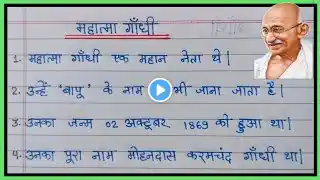 महात्मा गाँधी
1. महात्मा गाँधी एक महान नेता थे |
2. उन्हें 'बापू' के नाम भी जाना जाता है |
3. उनका जन्म 02 अक्टूबर 1869 को हुआ था |
4. उनका पूरा नाम मोहनदास करमचंद गाँधी था |